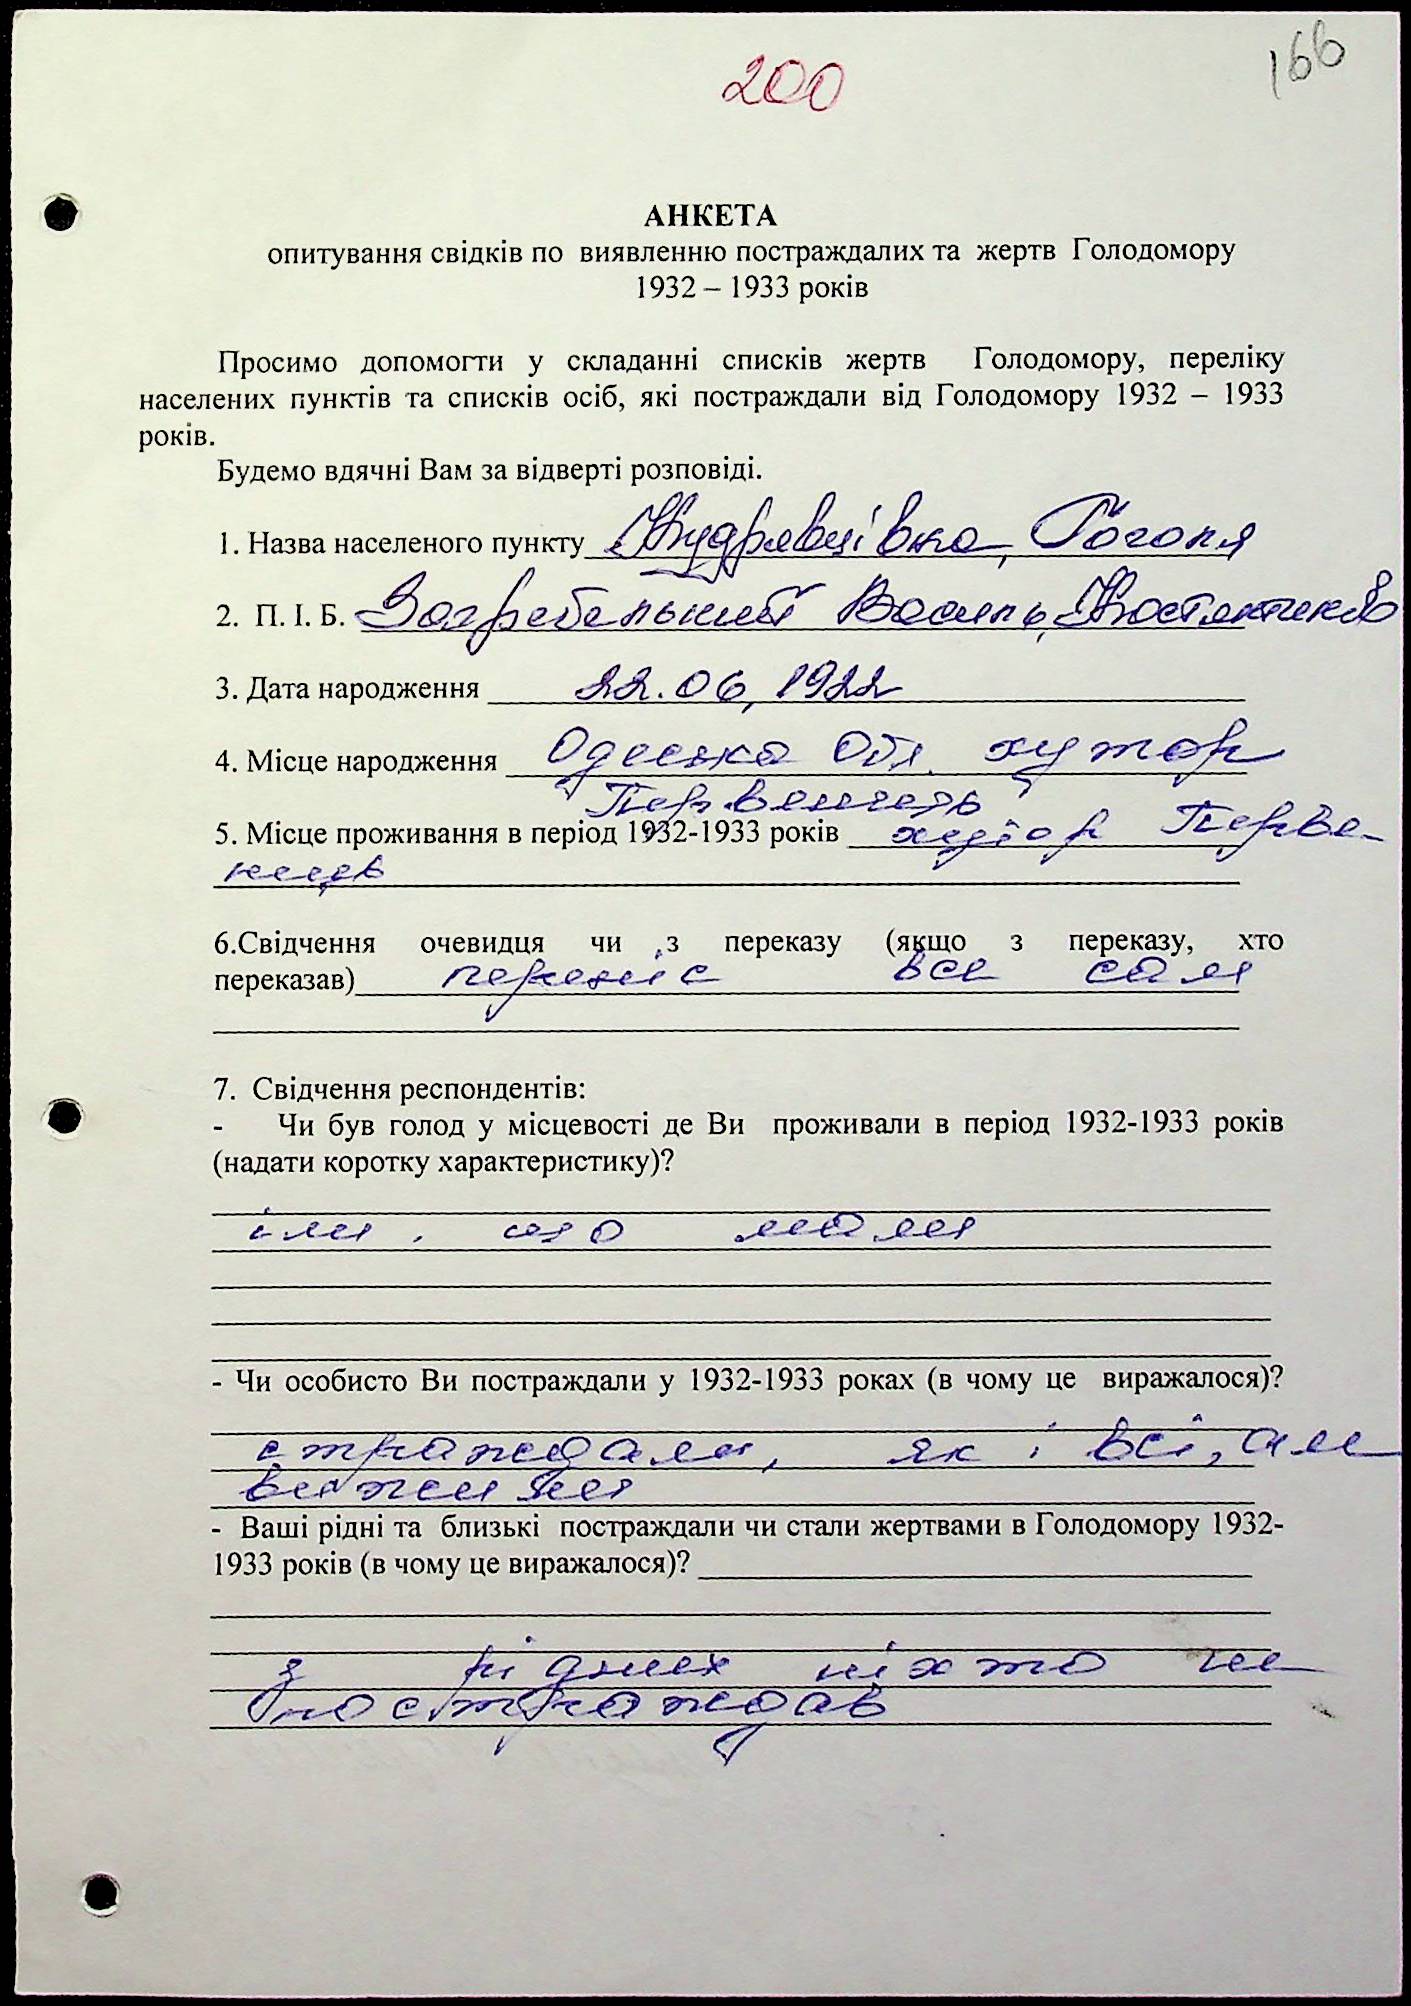 166
200
АНКЕТА
опитування свідків по виявленню постраждалих та жертв Голодомору
1932 – 1933 років
Просимо допомогти у складанні списків жертв Голодомору, переліку
населених пунктів та списків осіб, які постраждали від Голодомору 1932 – 1933
років.
Будемо вдячні Вам за відверті розповіді.
1. Назва населеного пункту Кудрявцівка, Гоголя
2. П. І. Б. Загребельний Василь Костянтинов
3. Дата народження 22.06.1922
4. Місце народження Одеська обл. хутор
Первенець
5. Місце проживання в період 1932-1933 років хутор Перве-
нець
6.Свідчення очевидця чи з переказу (якщо з переказу, хто
переказав) переніс все сам
7. Свідчення респондентів:
- Чи був голод у місцевості де Ви проживали в період 1932-1933 років
(надати коротку характеристику)?
їли, що мали
- Чи особисто Ви постраждали у 1932-1933 роках (в чому це виражалося)?
страждали, як і всі, але
вижили
- Ваші рідні та близькі постраждали чи стали жертвами в Голодомору 1932-
1933 років (в чому це виражалося)?
з рідних ніхто не
постраждав